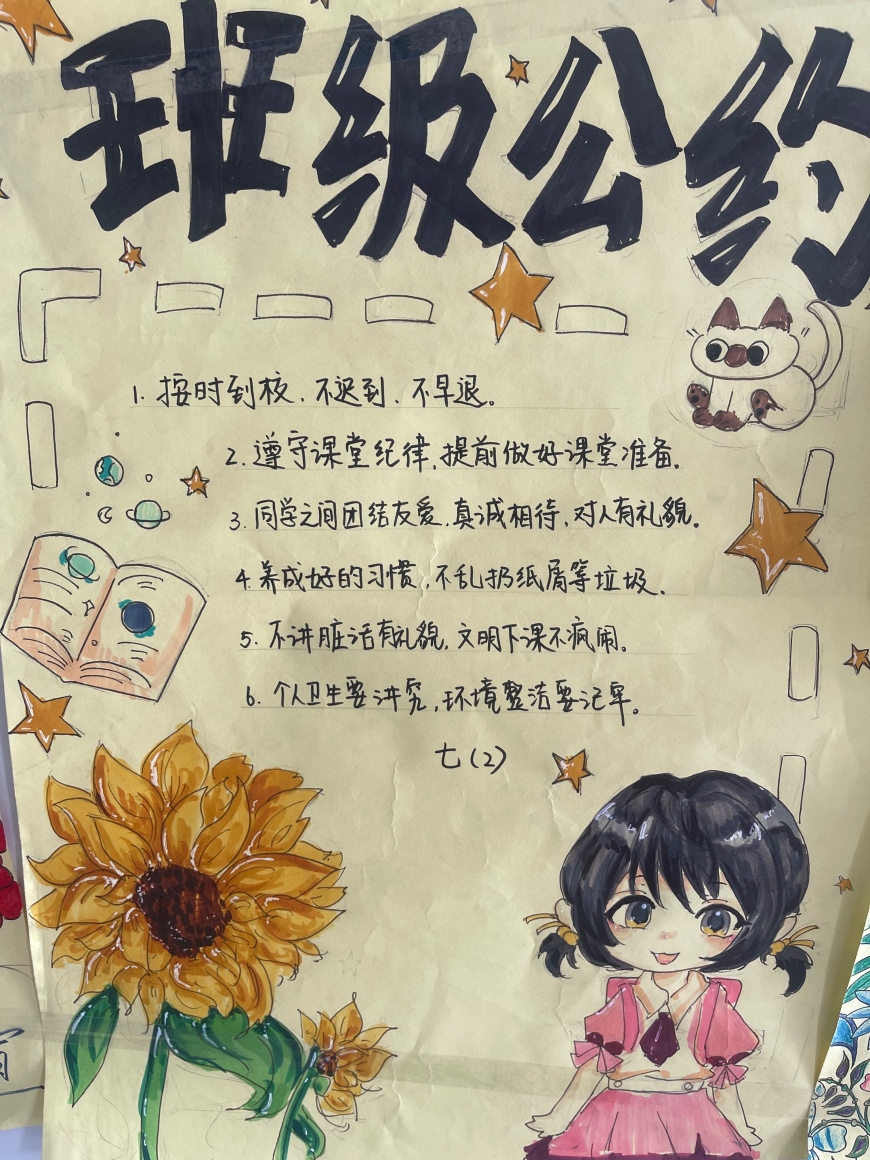 班级公约
1. 按时到校、不迟到、不早退。
2. 遵守课堂纪律,提前做好课堂准备。
3. 同学之间团结友爱,真诚相待,对人有礼貌。
4. 养成好的习惯,不乱扔纸屑等垃圾。
5. 不讲脏话有礼貌,文明下课不疯闹。
6. 个人卫生要讲究,环境整洁要记牢。
七(2)